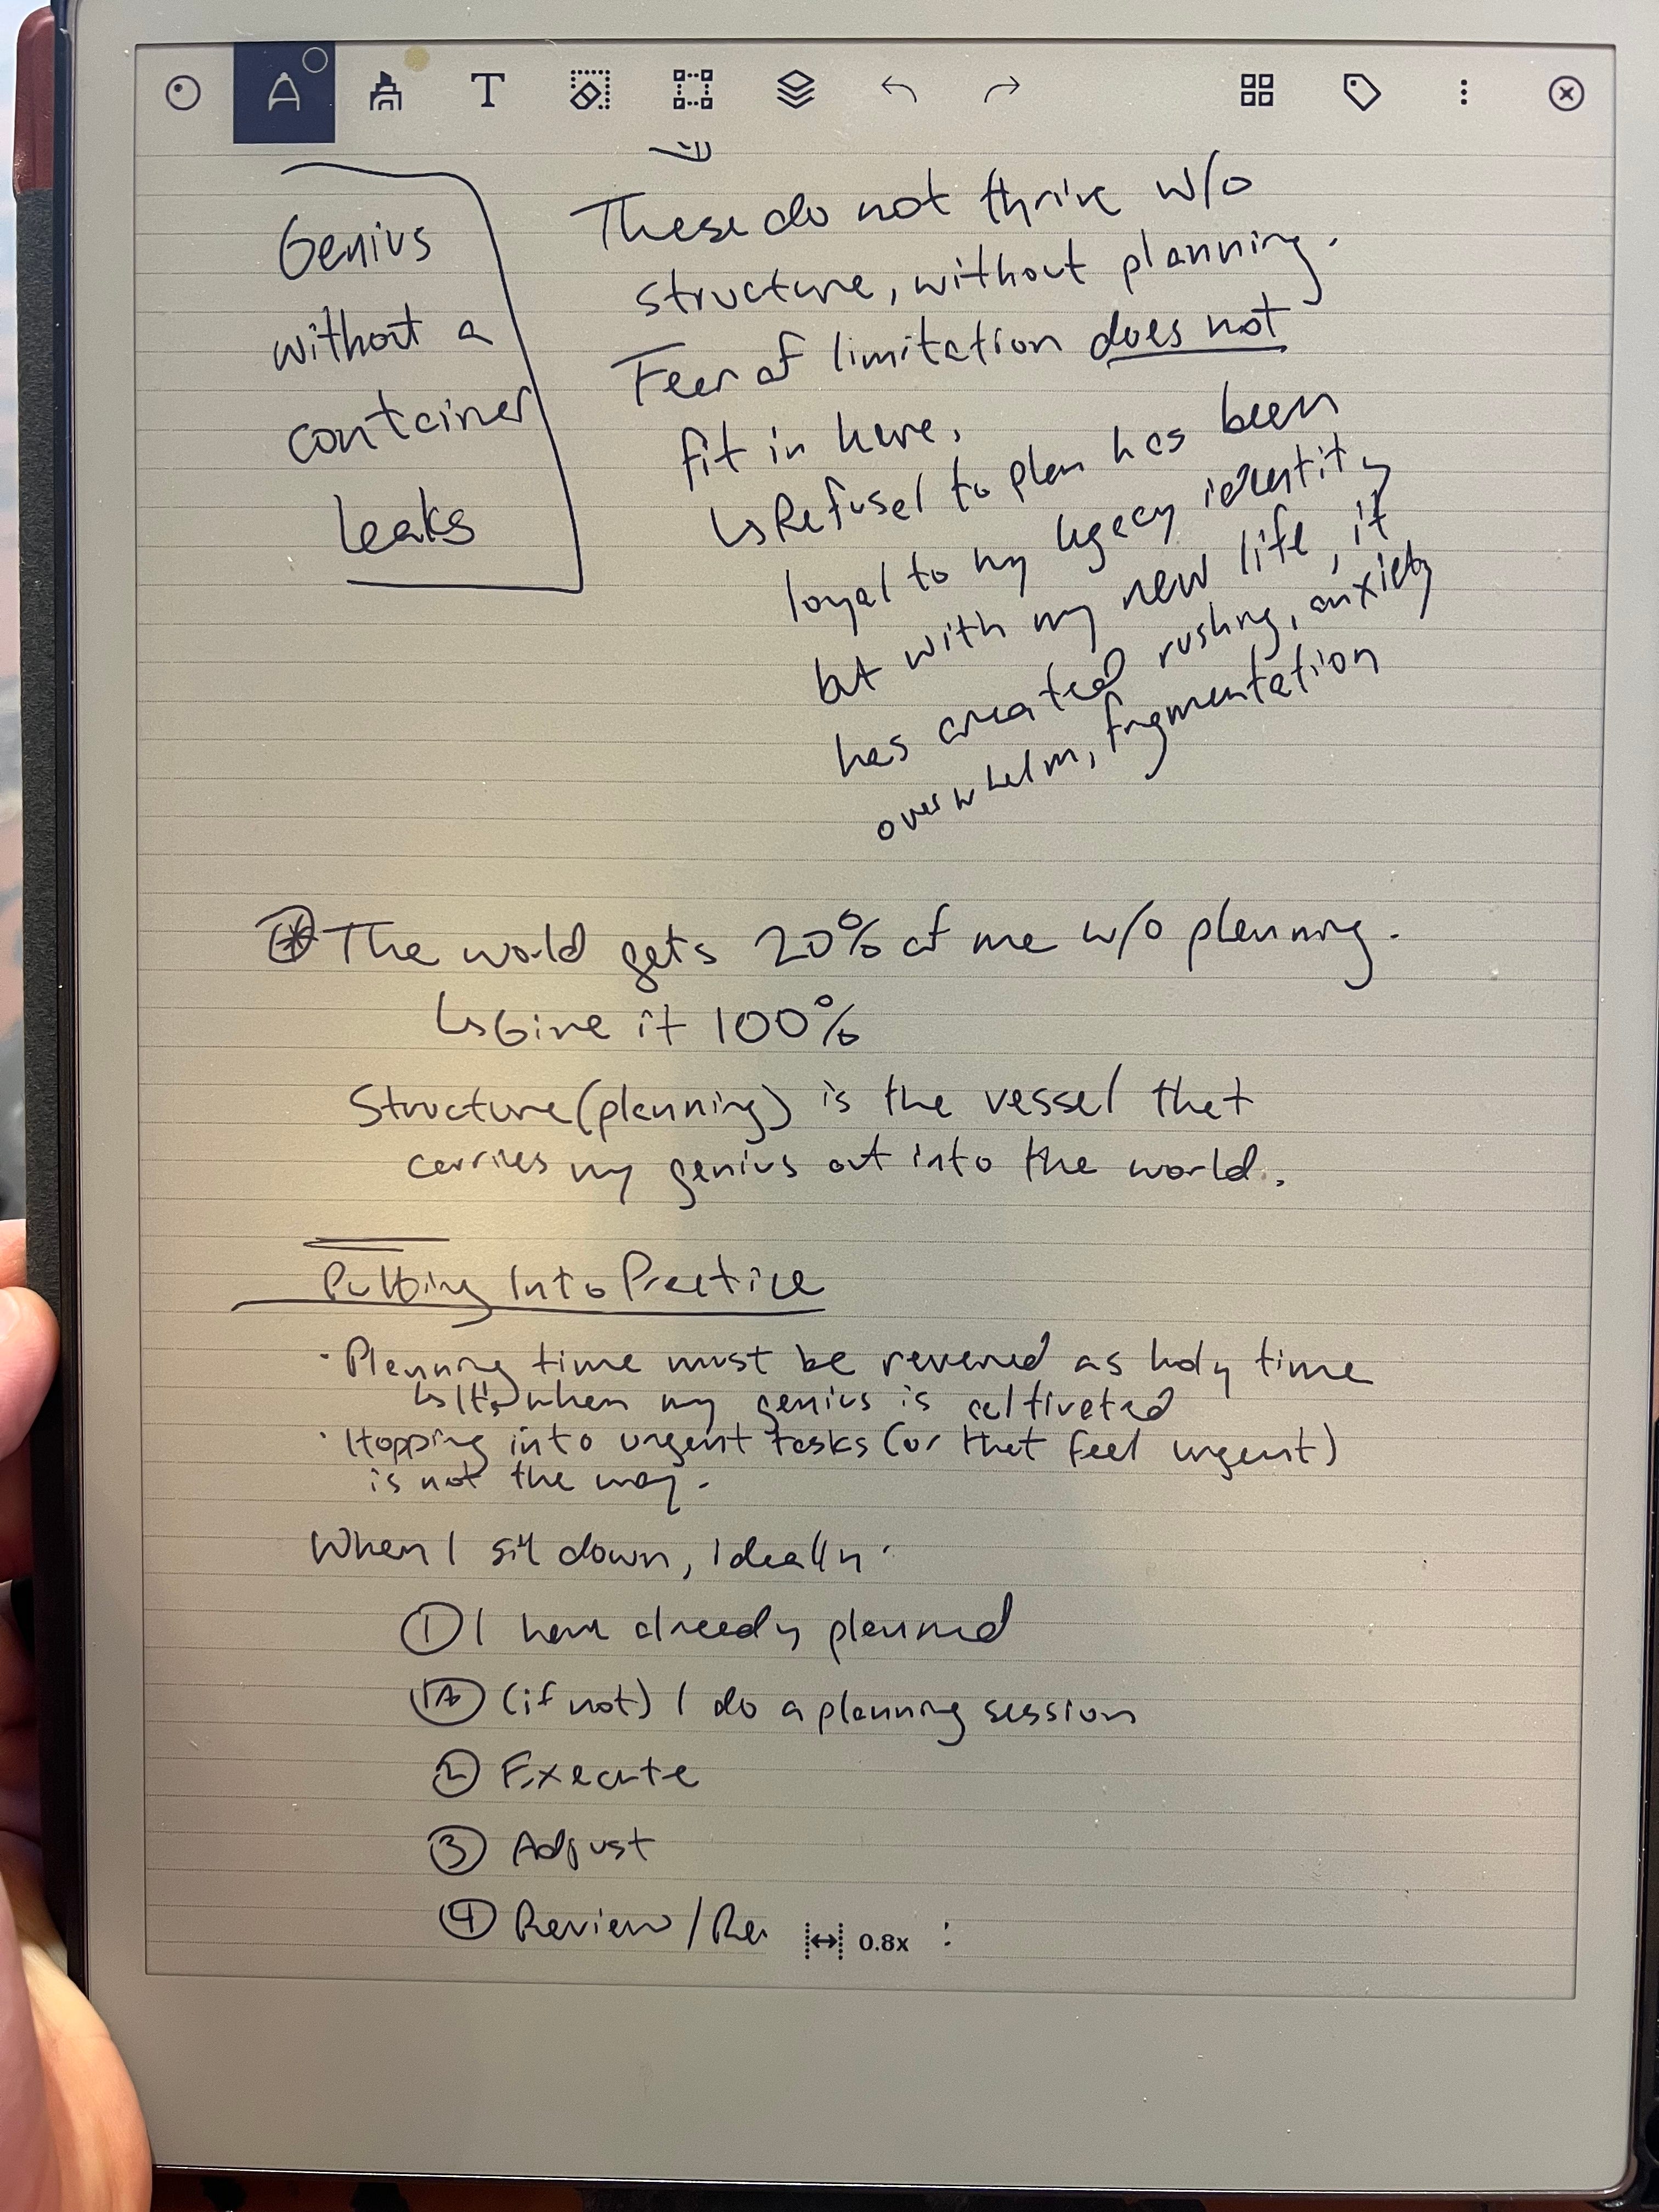 T
Genius
without a
container
leaks
These do not thrive w/o
structure, without planning.
Fear of limitation does not
fit in here.
↳ Refusal to plan has been
loyal to my legacy identity
but with my new life, it
has created rushing, anxiety
overwhelm, fragmentation
* The world gets 20% of me w/o planning.
↳ Give it 100%
Structure (planning) is the vessel that
carries my genius out into the world.
Putting Into Practice
· Planning time must be revered as holy time
↳ It's when my genius is cultivated
· Hopping into urgent tasks (or that feel urgent)
is not the way.
When I sit down, ideally:
① I have already planned
(if not) I do a planning session
② Execute
③ Adjust
④ Review / Re
0.8x